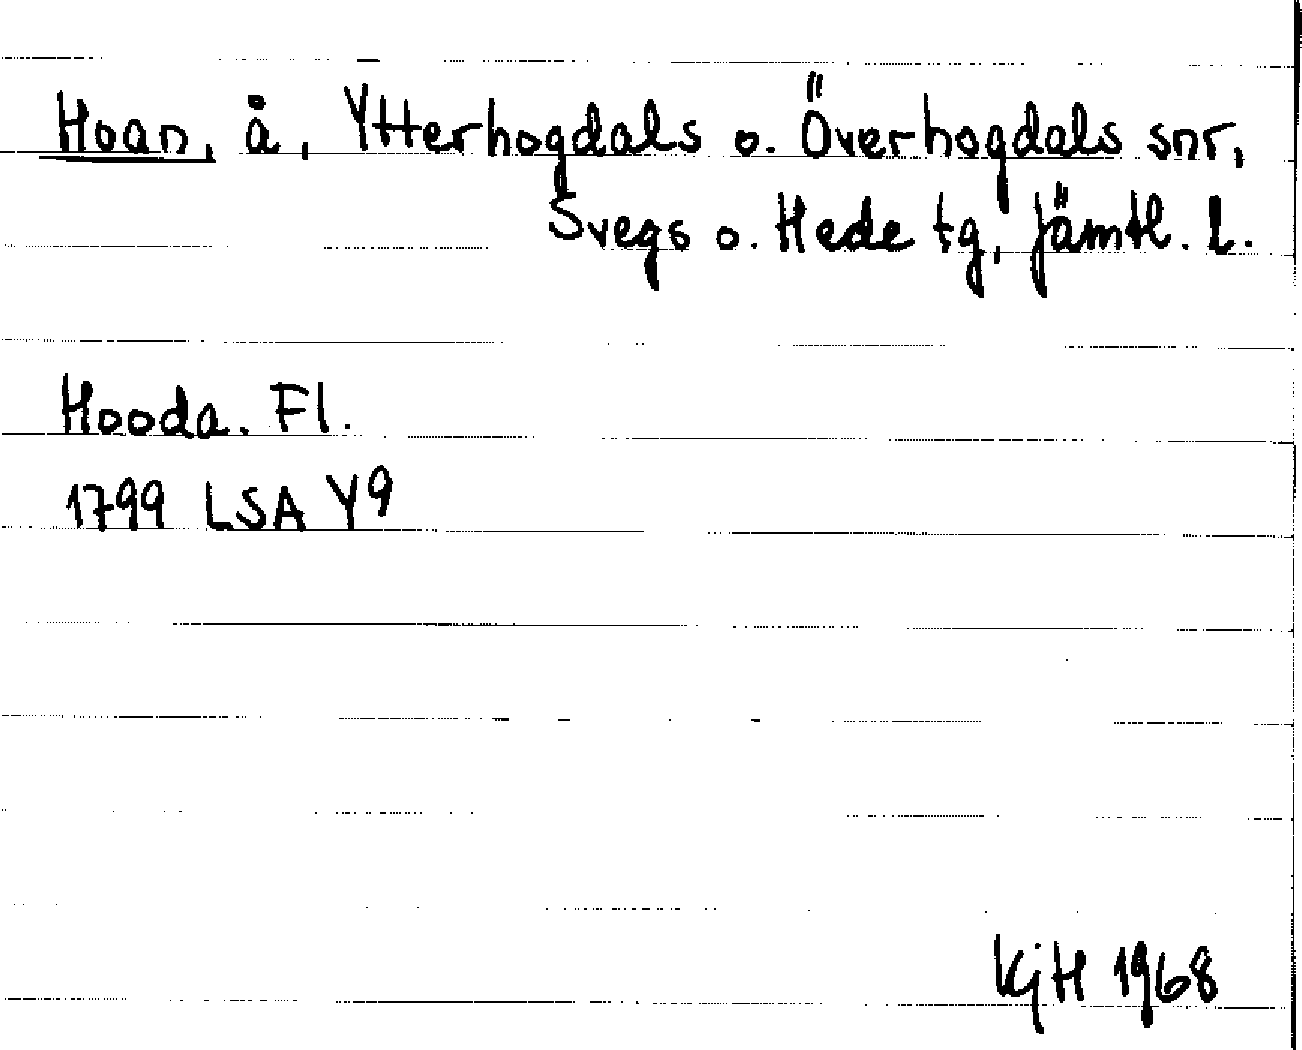 Hoan, å, Ytterhogdals o. Överhogdals snr,
Svegs o. Hede tg, Jämtl. L.
Hooda. Fl.
1799 LSA Y9
KjH 1968